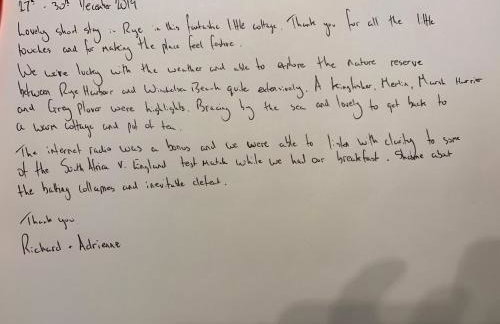 27th - 30th December 2019
Lovely short stay in Rye in this fantastic little cottage. Thank you for all the little
touches and for making the place feel festive.
We were lucky with the weather and able to explore the nature reserve
between Rye Harbour and Winchelsea Beach quite extensively. A Kingfisher, Merlin, Marsh Harrier
and Grey Plover were highlights. Bracing by the sea and lovely to get back to
a warm cottage and pot of tea.
The internet radio was a bonus and we were able to listen with clarity to some
of the South Africa v. England test match while we had our breakfast. Shame about
the batting collapses and inevitable defeat.
Thank you
Richard + Adrienne